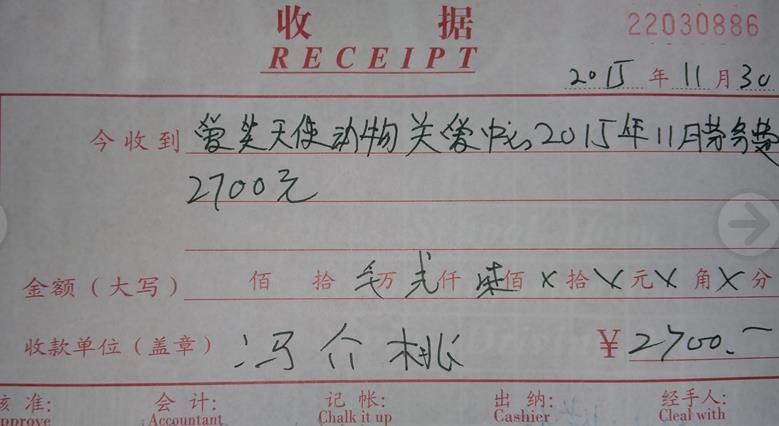 收 据
22030886
RECEIPT
2015 年 11 月 30
今收到 爱芙天使动物关爱中心2015年11月劳务费
2700元
金额（大写） 佰 拾 万 贰 仟 柒 佰 X 拾 X 元 X 角 X 分
收款单位（盖章） 冯介桃 ￥2700.一
核 准: 会 计: 记 帐: 出 纳: 经手人:
pprove Accountant Chalk it up Cashier Cleal with